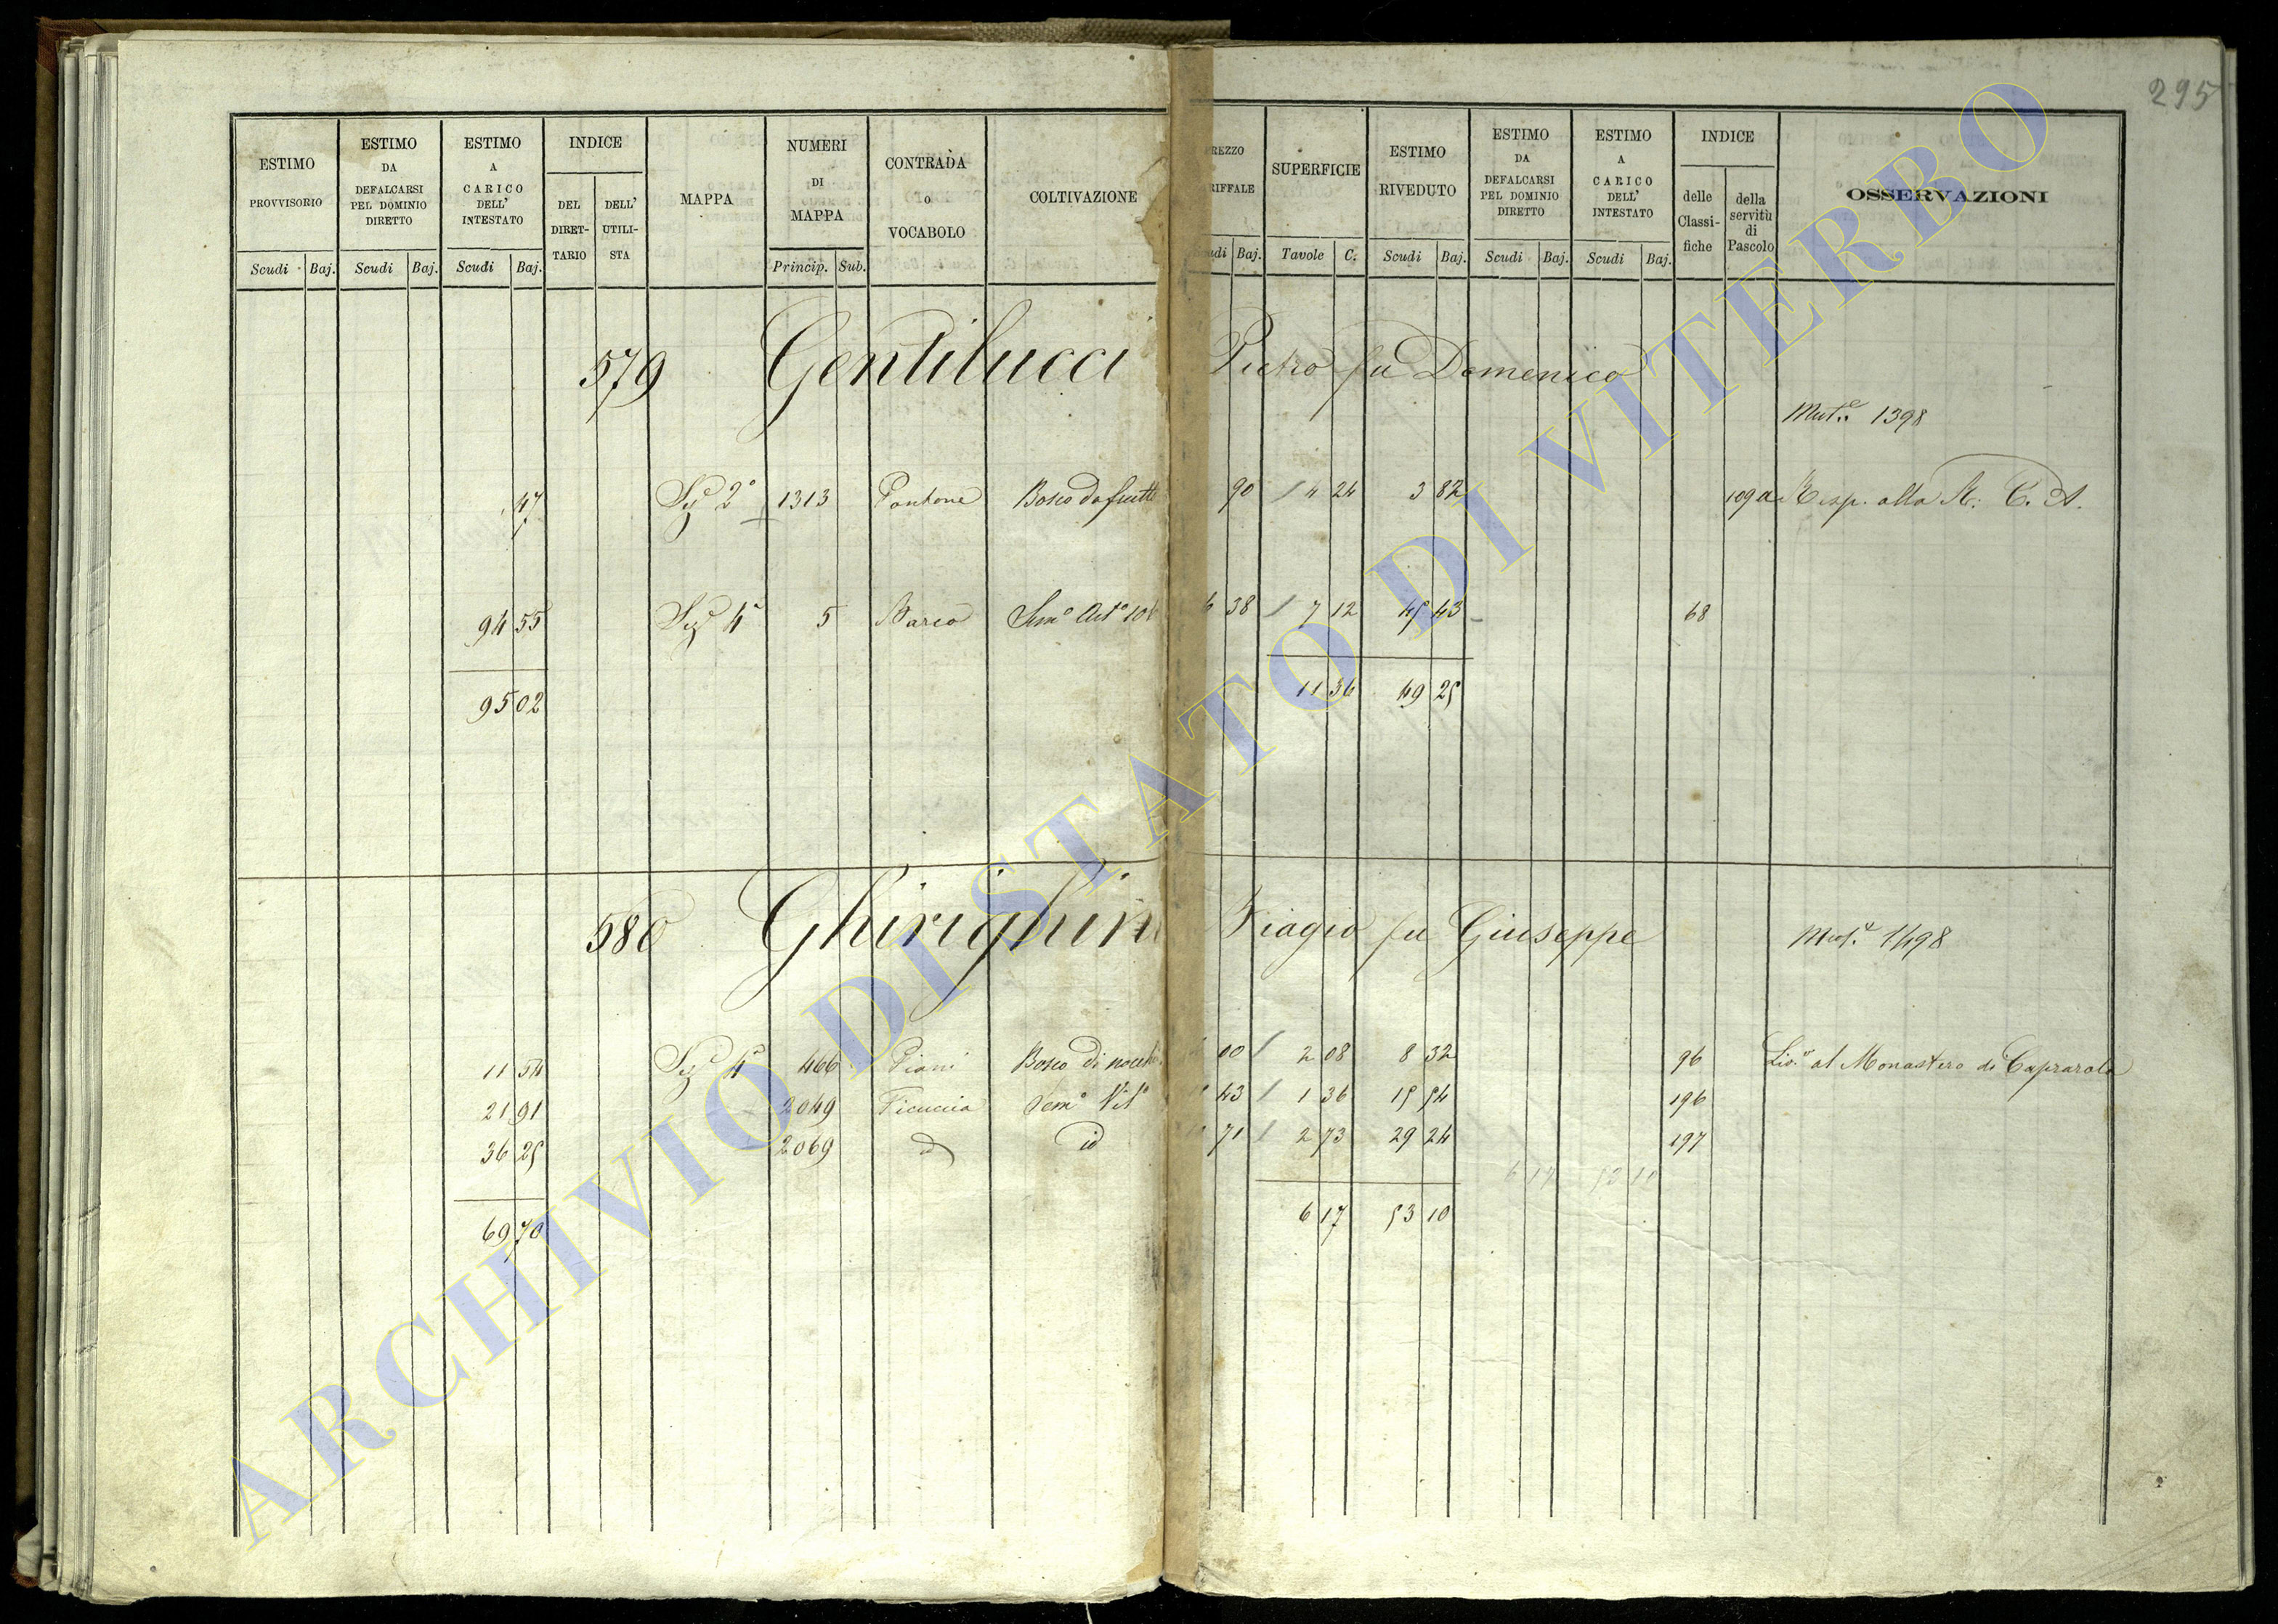 295
ESTIMO PROVVISORIO Scudi Baj.
ESTIMO DA DEFALCARSI PEL DOMINIO DIRETTO Scudi Baj.
ESTIMO A CARICO DELL' INTESTATO Scudi Baj.
INDICE DEL DIRET-TARIO DELL' UTILI-STA
MAPPA
NUMERI DI MAPPA Princip. Sub.
CONTRADA o VOCABOLO
COLTIVAZIONE
REZZO RIFFALE udi Baj.
SUPERFICIE Tavole C.
ESTIMO RIVEDUTO Scudi Baj.
ESTIMO DA DEFALCARSI PEL DOMINIO DIRETTO Scudi Baj.
ESTIMO A CARICO DELL' INTESTATO Scudi Baj.
INDICE delle Classi-fiche della servitù di Pascolo
OSSERVAZIONI
579 Gentilucci Pietro fu Domenico
Mut.e 1398
47 Sez 2ª 1313 Pantane Bosco da frutto 90 4 24 3 82 109 a Resp. alla R. C. A.
94 55 Sez 4ª 5 Barco Sem.o Art.o 6 38 7 12 45 43 68
95 02 11 36 49 25
580 Ghirighin Biagio fu Giuseppe Mut.e 1498
11 54 Sez 4ª 466 Piani Bosco di nocch 00 2 08 8 32 96 Liv.o al Monastero di Caprarola
21 91 2049 Ficuccia Sem.o Vit.o 43 1 36 15 54 196
36 25 2069 id id 71 2 73 29 24 197
6 17 53 10
69 70 6 17 53 10
ARCHIVIO DI STATO DI VITERBO